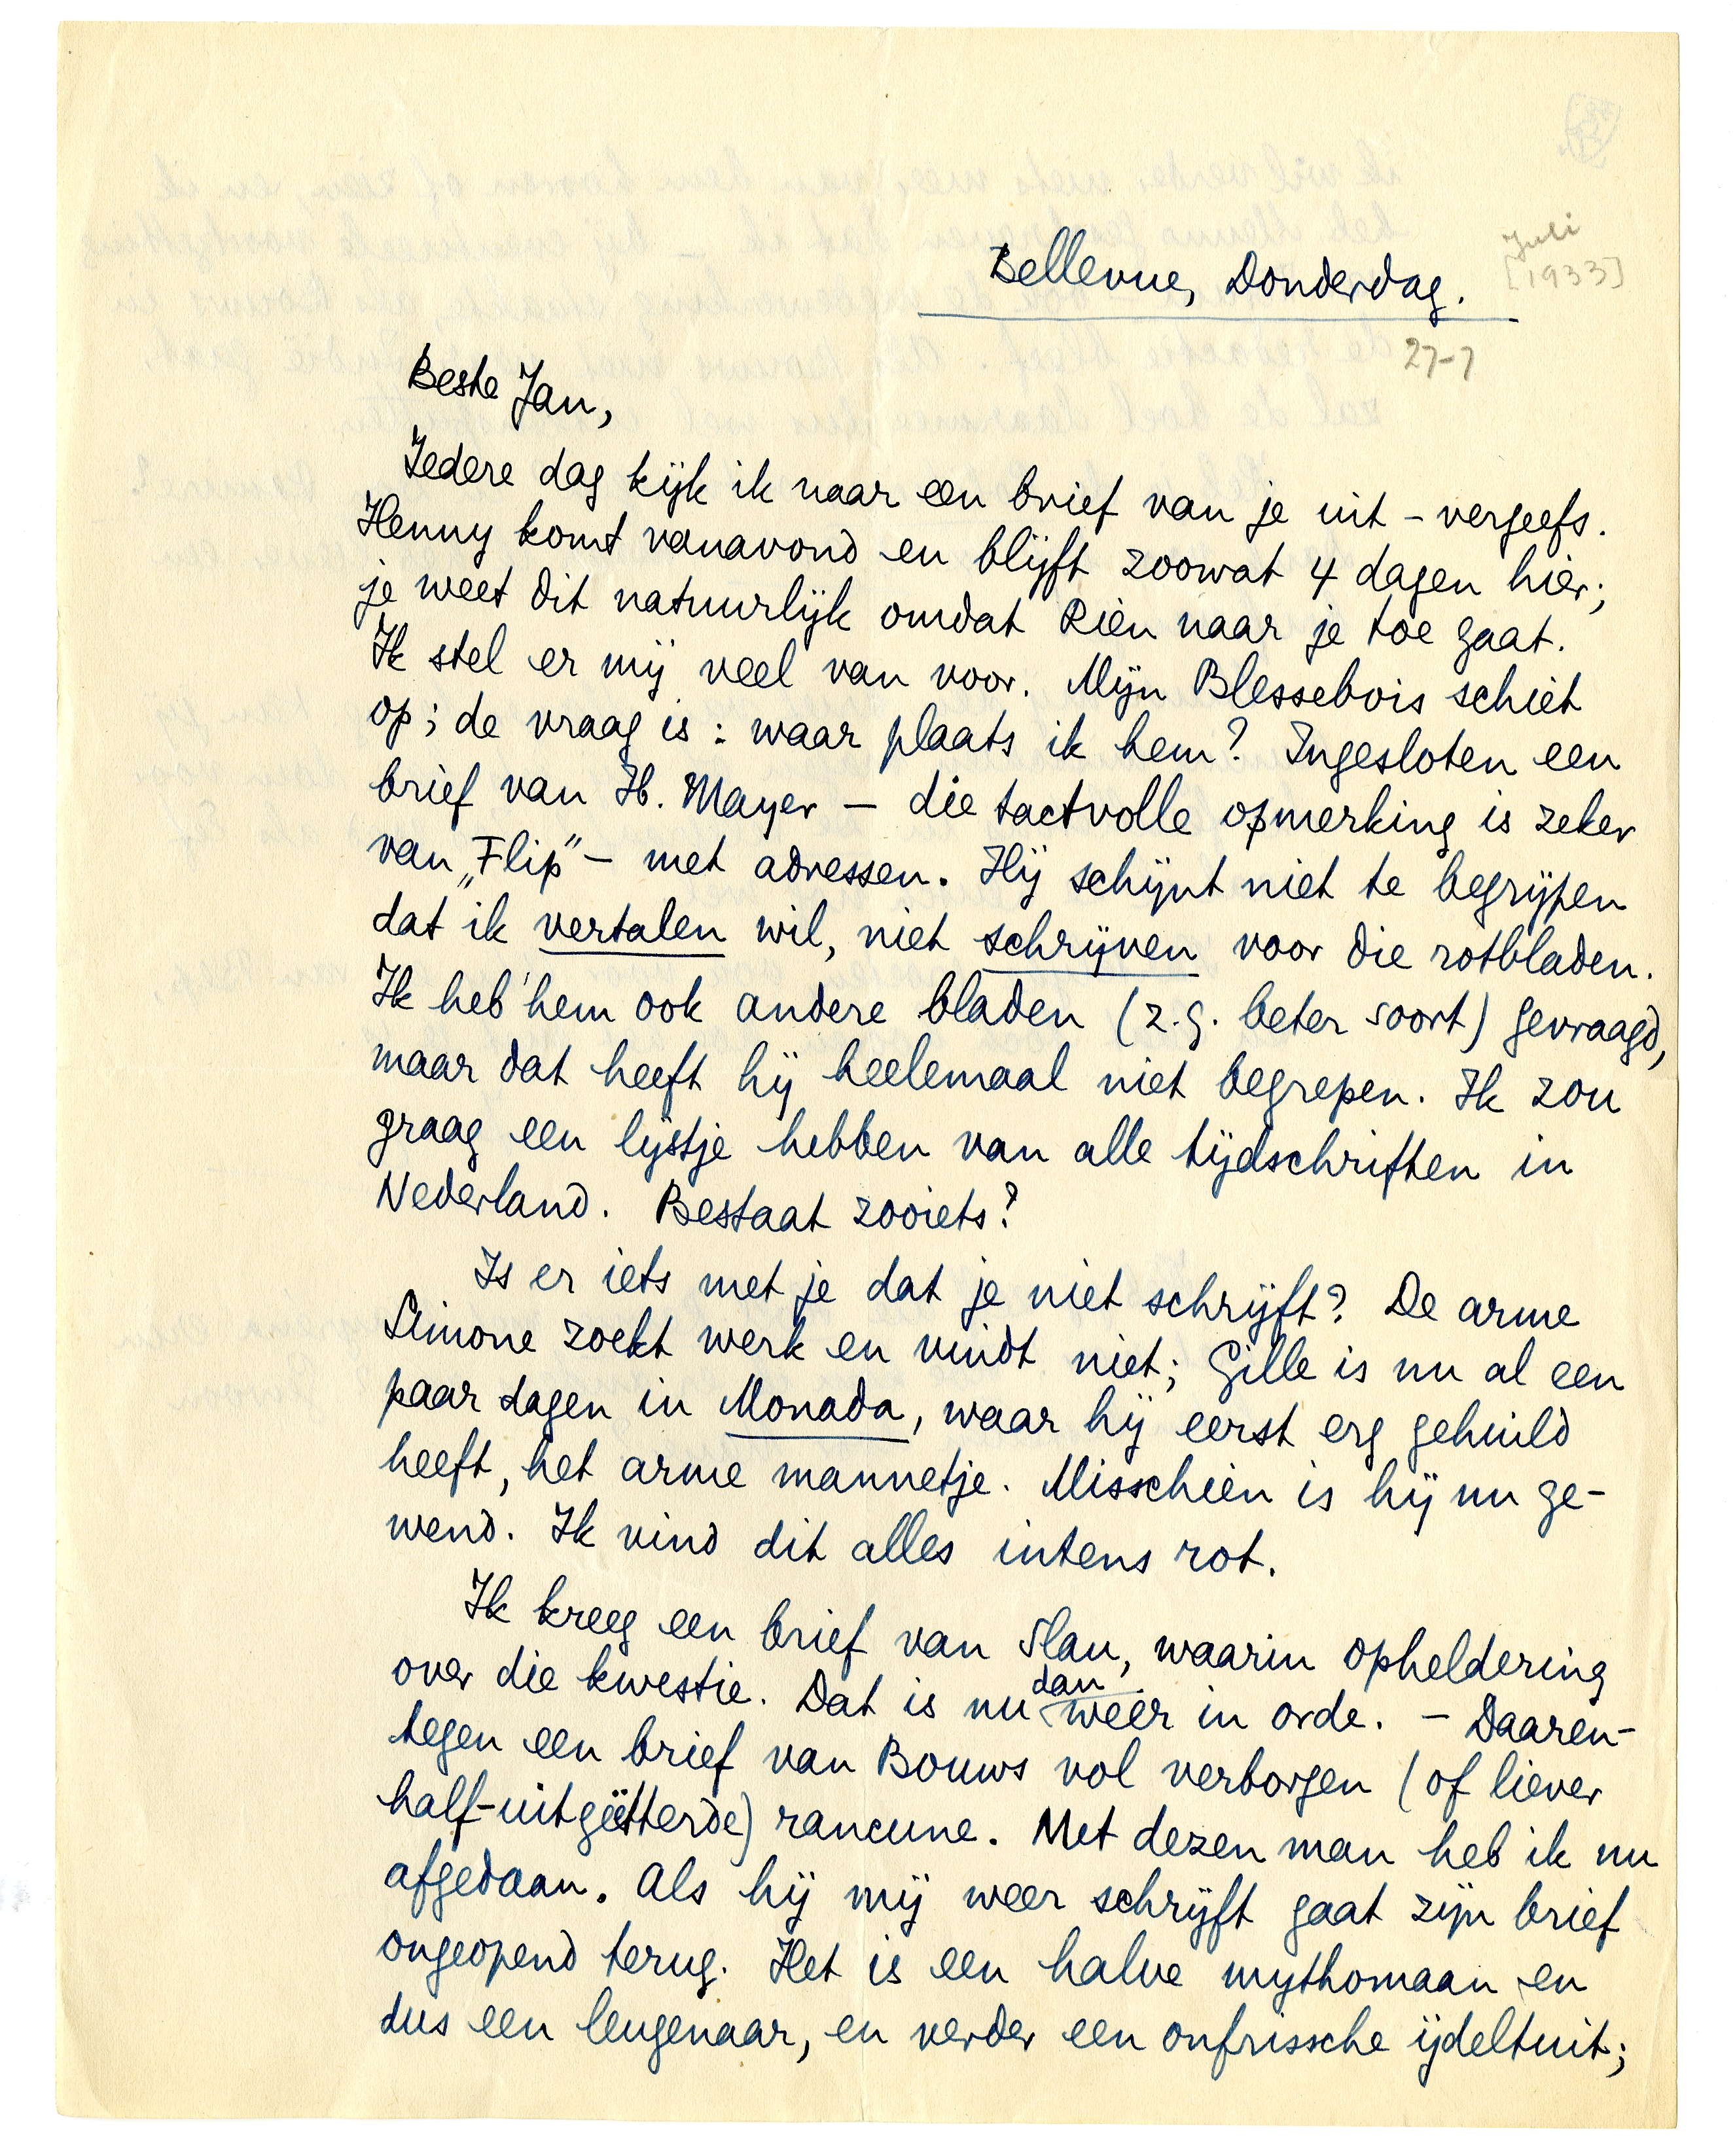 Bellevue, Donderdag.
Juli
[1933]
27-7
Beste Jan,
Iedere dag kijk ik naar een brief van je uit – vergeefs.
Henny komt vanavond en blijft zoowat 4 dagen hier;
je weet dit natuurlijk omdat Rien naar je toe gaat.
Ik stel er mij veel van voor. Mijn Blessebois schiet
op; de vraag is: waar plaats ik hem? Ingesloten een
brief van H. Mayer – die tactvolle opmerking is zeker
van „Flip” – met adressen. Hij schijnt niet te begrijpen
dat ik vertalen wil, niet schrijven voor die rotbladen.
Ik heb hem ook andere bladen (z.g. beter soort) gevraagd,
maar dat heeft hij heelemaal niet begrepen. Ik zou
graag een lijstje hebben van alle tijdschriften in
Nederland. Bestaat zooiets?
Is er iets met je dat je niet schrijft? De arme
Simone zoekt werk en vindt niet; Gille is nu al een
paar dagen in Monada, waar hij eerst erg gehuild
heeft, het arme mannetje. Misschien is hij nu ge-
wend. Ik vind dit alles intens rot.
Ik kreeg een brief van Slau, waarin opheldering
over die kwestie. Dat is nu dan weer in orde. – Daaren-
tegen een brief van Bouws vol verborgen (of liever
half-uitgeëtterde) rancune. Met dezen man heb ik nu
afgedaan. Als hij mij weer schrijft gaat zijn brief
ongeopend terug. Het is een halve mythomaan en
dus een leugenaar, en verder een onfrissche ijdeltuit;